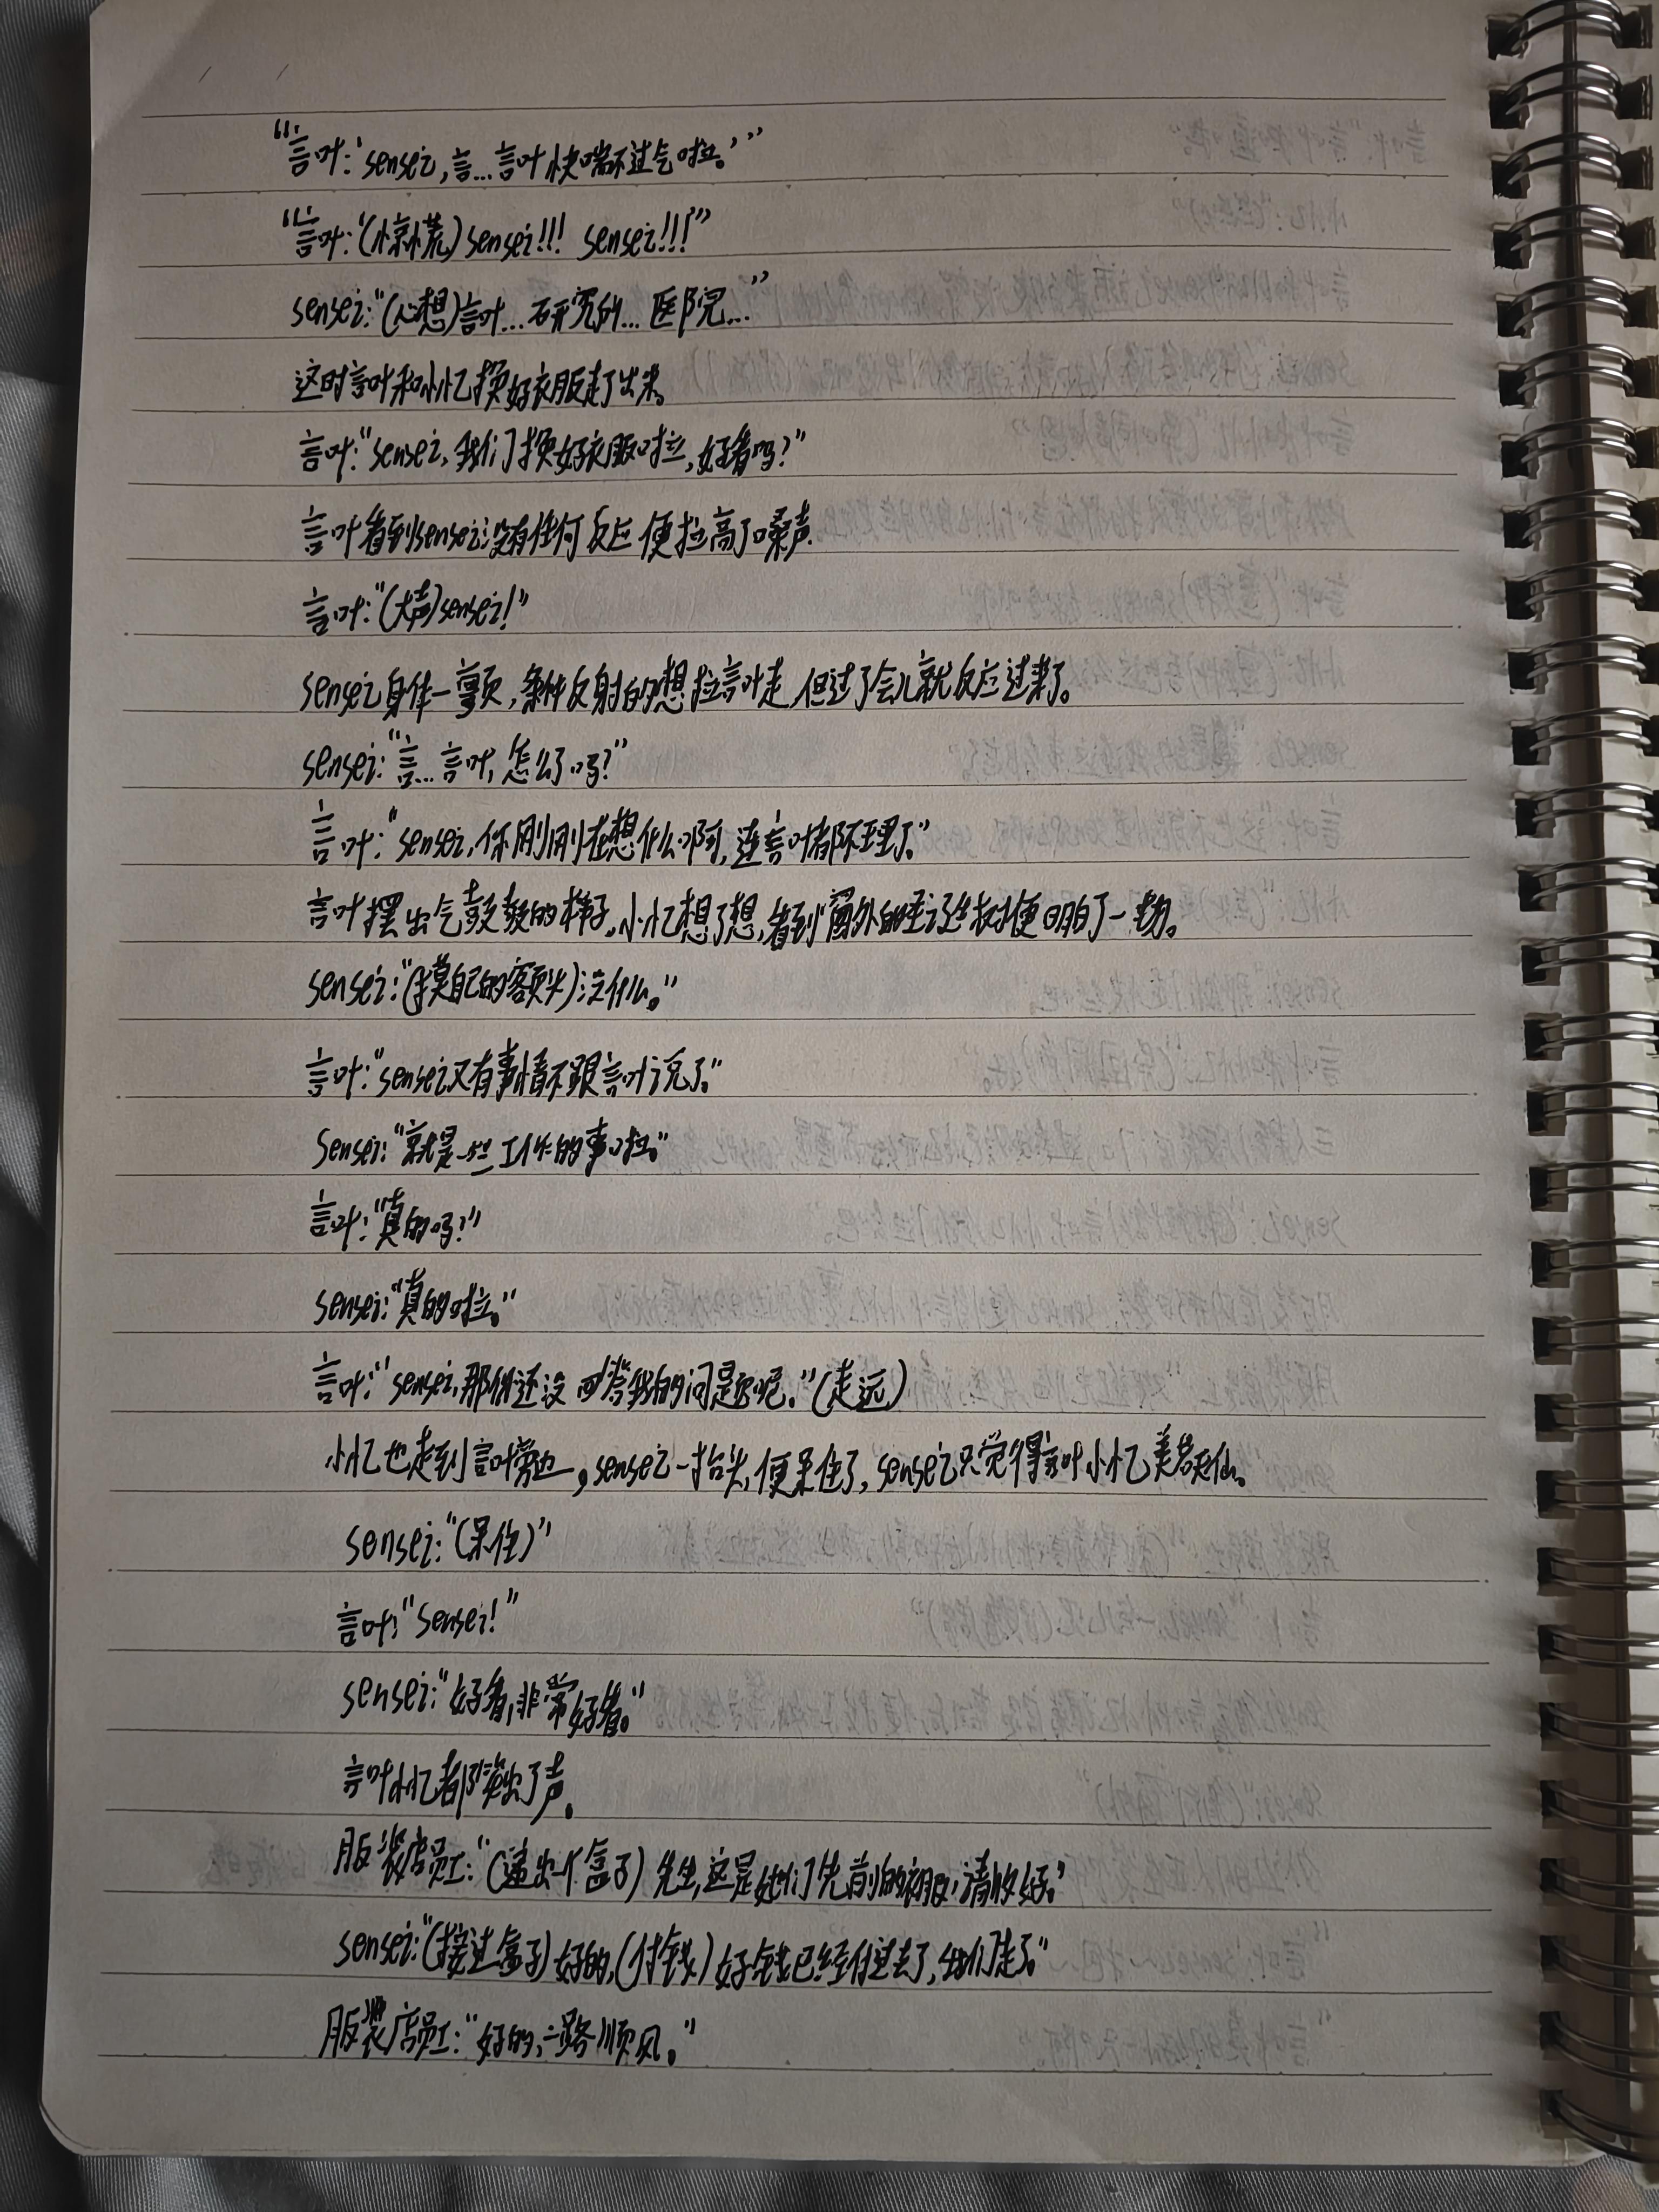 “言叶：‘sensei，言…言叶快喘不过气啦。’”
“言叶：“(惊慌)sensei!!! sensei!!!”
sensei：“(心想)言叶…研究所…医院…”
这时言叶和小忆换好衣服走了出来。
言叶：“sensei，我们换好衣服啦，好看吗？”
言叶看到sensei没有任何反应便拉高了嗓声.
言叶：“(大声)sensei!”
sensei身体一颤，条件反射的想拉言叶走，但过了会儿就反应过来了。
sensei：“言…言叶，怎么了吗？”
言叶：“sensei，你刚刚在想什么啊，连言叶都不理了。”
言叶摆出气鼓鼓的样子。小忆想了想，看到窗外的便明白了一切。
sensei：“(摸自己的额头)没什么。”
言叶：“sensei又有事情不跟言叶说了。”
Sensei：“就是一些工作的事啦。”
言叶：“真的吗？”
sensei：“真的啦。”
言叶：“sensei，那你还没回答我的问题呢。”(走远)
小忆也走到言叶旁边。sensei一抬头，便呆住了，sensei只觉得言叶小忆美若天仙。
sensei：“(呆住)”
言叶：“Sensei!”
sensei：“好看，非常好看。”
言叶小忆都笑出了声。
服装店员工：“(递出一个盒子)先生，这是她们先前的衣服，请收好。”
sensei：“(接过盒子)好的，(付钱)好钱已经付过去了，我们走了。”
服装店员工：“好的，一路顺风。”